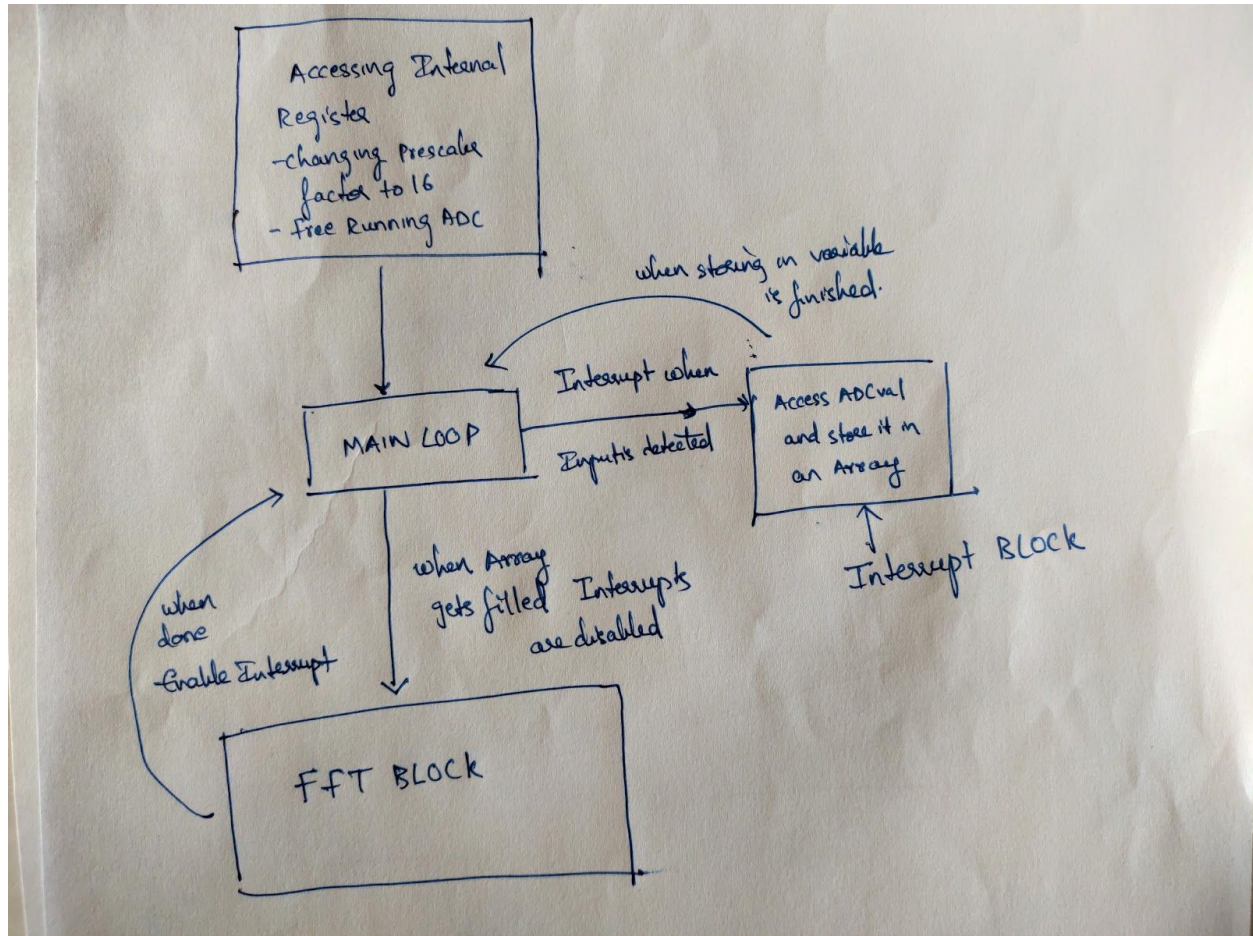 Accessing Internal
Register
-changing Prescaler
factor to 16
- free Running ADC
when storing in variable
is finished.
Interrupt when
Input is detected
MAIN LOOP
Access ADCval
and store it in
an Array
Interrupt BLOCK
when Array
gets filled Interrupts
are disabled
when
done
-Enable Interrupt
FFT BLOCK